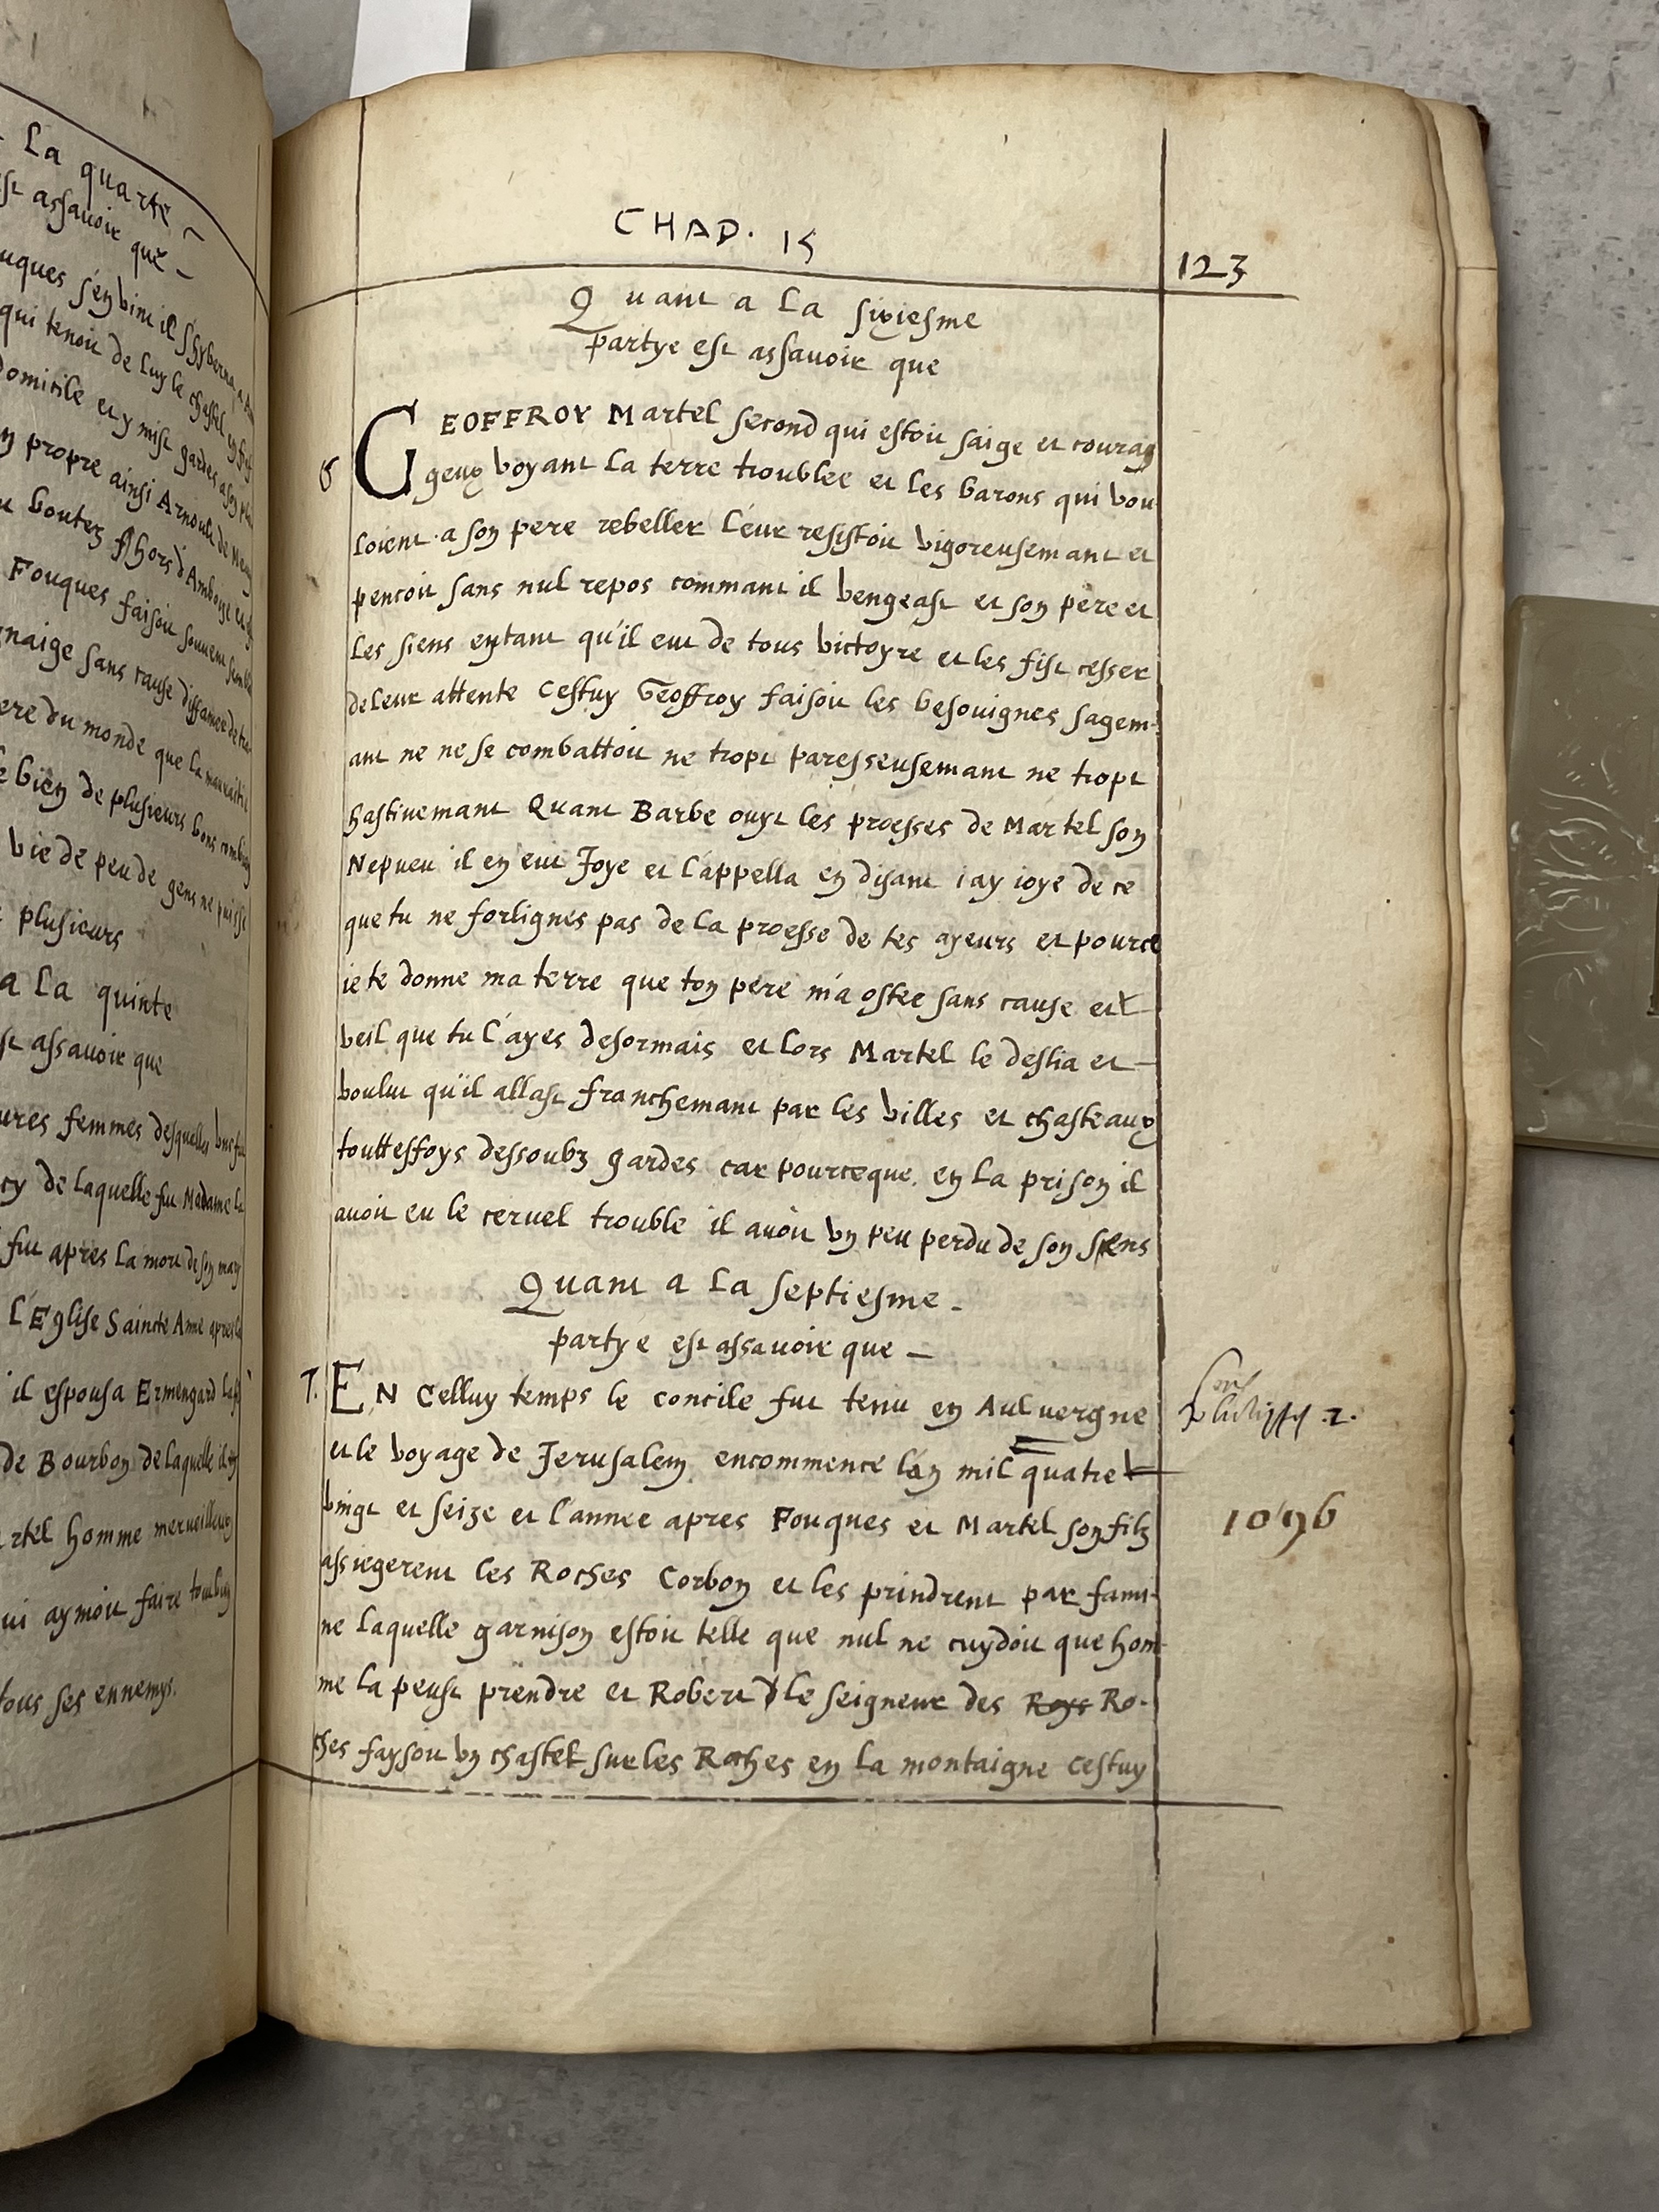 La quarte
est assavoir que
ouques s'en vint il s'hyberna a
qui tenoit de luy le chastel en
domicile et y mist gardes a son
propre ainsi Arnoul de
bouter hors d'Amboyse et
Fouques faisoit souvent
gnaige sans cause diffamer de
ere du monde que la mauvaitie
bien de plusieurs bons
vie de peu de gens ne puisse
plusieurs
a la quinte
est assavoir que
ures femmes desquelles
cy de laquelle fut Madame la
fut apres la mort de son mary
l'Eglise Saincte Anne apres
il espousa Ermengard
de Bourbon de laquelle il
rtel homme merveilleux
ui aymoit faire
tous ses ennemys.
CHAP. 15
123
Quant a la sixiesme
partye est assavoir que
6 GEOFFROY Martel second qui estoit saige et courag
geux voyant la terre troublee et les barons qui vou
loient a son pere rebeller leur resistoit vigoreusemant et
pencoit sans nul repos commant il vengeast et son pere et
les siens entant qu'il eut de tous victoyre et les fist cesser
de leur attente Cestuy Geoffroy faisoit les besouignes sagem-
ant ne ne se combattoit ne tropt paresseusemant ne tropt
hastivemant Quant Barbe ouyt les proesses de Martel son
Nepveu il en eut Joye et l'appella en disant i ay ioye de ce
que tu ne forlignes pas de la proesse de tes ayeurs et pource
ie te donne ma terre que ton pere m'a ostee sans cause et
veil que tu l'ayes desormais et lors Martel le deslia et
voulut qu'il allast franchemant par les villes et chasteaux
touttesfoys dessoubz gardes car pource que en la prison il
avoit eu le cervel trouble il avoit un peu perdu de son sens
Quant a la septiesme
partye est assavoir que
7. EN Celluy temps le concile fut tenu en Aulvergne
et le voyage de Jerusalem encommence l'an mil quatre
vingt et seize et l'annee apres Fouques et Martel son filz
assiegerent les Roches Corbon et les prindrent par fami-
ne laquelle garnison estoit telle que nul ne cuydoit que hom-
me la peust prendre et Robert le seigneur des Roys Ro-
ches faysoit un chastel sur les Roches en la montaigne Cestuy
Philippes .1.
1096